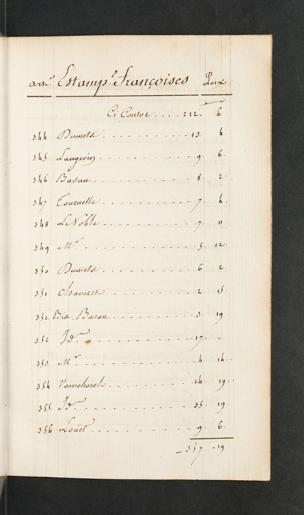 art.s Estamp.s Françoises Prix
Ci Contre .... 212. 6
344 Duweld ........ 13. 6
345 Laugerin ........ 9. 6
346 Basan ........ 8. 2
347 Tournelle ........ 7. 4
348 Le Noble ........ 7. 11
349 M.r ........ 5. 12
350 Duweld ........ 6. 2
351 Chavaret ........ 2. 15
351. Bis. Basan ........ 3. 19
352 Id.m ........ 17.
353 M.r ........ 4. 14
354 ........ 14. 19.
355 Id.m ........ 35. 19
356 Louet ........ 9. 6.
357. 19